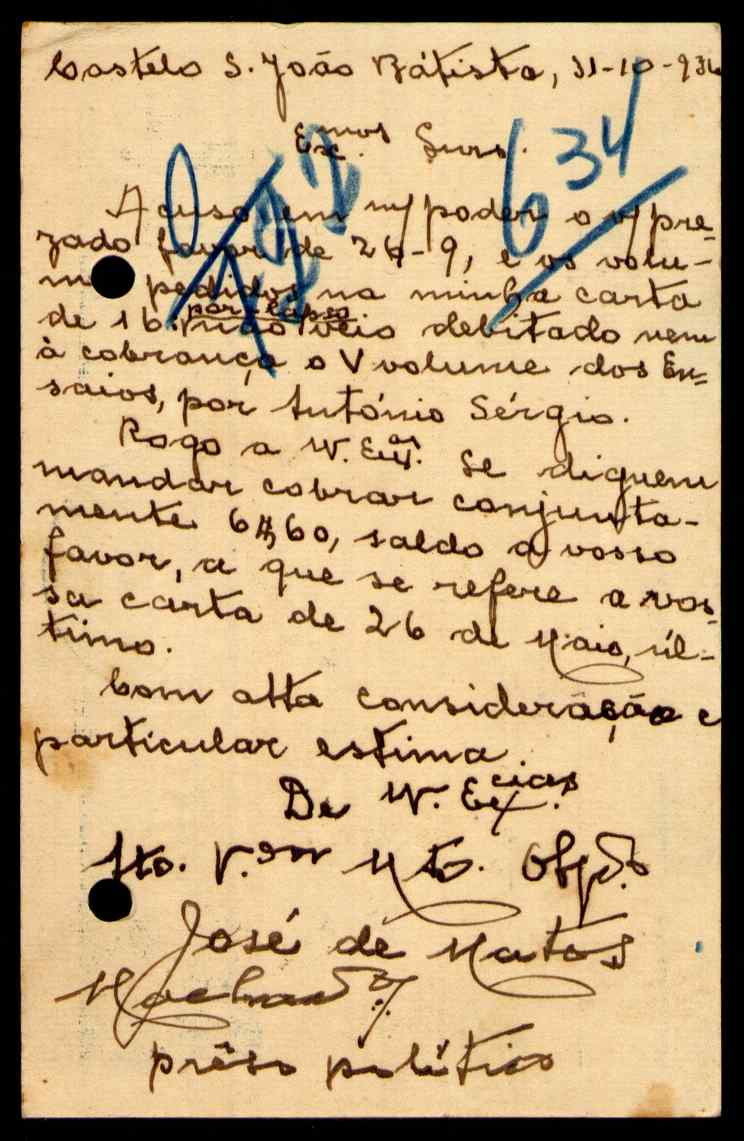 Castelo S. João Bátista, 31-10-936
Ex.mos Snrs.
634
Acuso em n/ poder o v/ pre-
zado favor de 26-9, e os volu-
mes pedidos na minha carta
de 16. por lapso não veio debitado nem
à cobrança o V volume dos En-
saios, por António Sérgio.
Rogo a W. Ex.as Se diguem
mandar cobrar conjunta-
mente 6$60, saldo a vosso
favor, a que se refere a vos-
sa carta de 26 de Maio, úl-
timo.
Com alta consideração e
particular estima
De W. Ex.cias
Ato. V.dor Mto. Obgdo.
José de Matos
Machado
prêso político